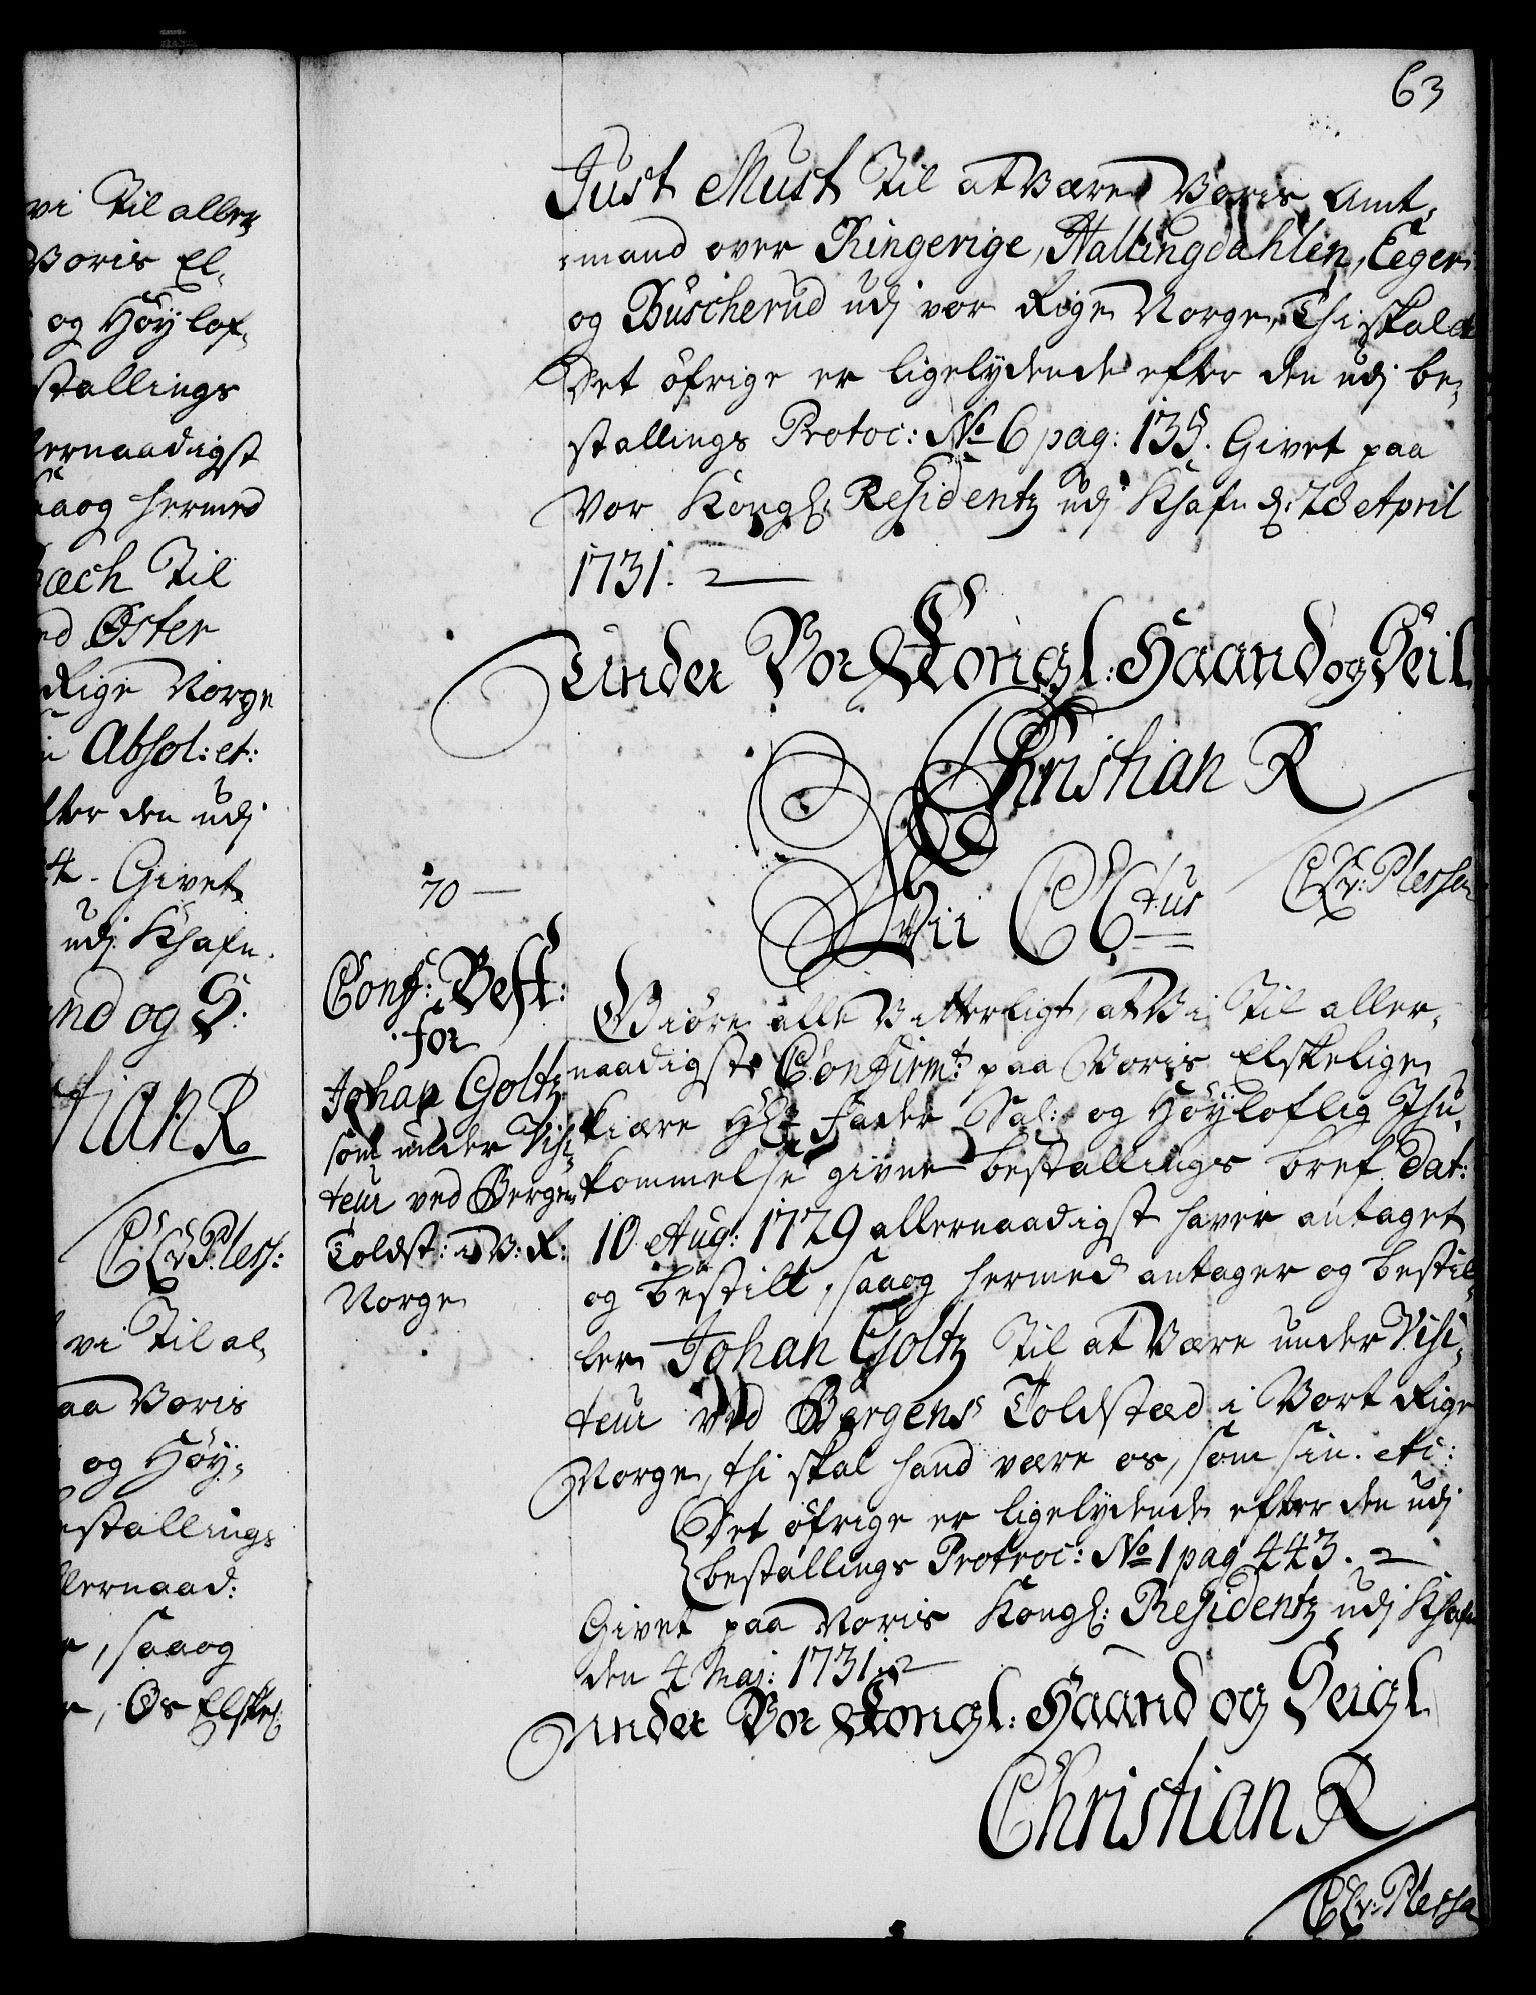 63
Just Must Til at Være Voris Amt-
mand over Ringerige, Hallingdahlen, Eeger
og Büscherud udj vor Rige Norge, Thi skal etc
Det öfrige er ligelydende efter den udj be-
stallings Protoc: No 6 pag: 135. Givet paa
Vor Kongl: Residentz udj Khafn d: 28 April
1731.
Under Vor Kongl: Haand og Seil
Christian R
CAv: Plessen
70 —
Wii C 6tus
Conf: Best:
for
Johan Goltz
som under Visi-
teur ved Bergens
Toldst: i V: R:
Norge
Giöre alle Vitterligt, at Vi Til aller-
naadigste Confirmt: paa Voris Elskelige
kiære Hr Fader Sal: og Höyloflig Ihu-
kommelse givne bestallings bref dat:
10 Aug: 1729 allernaadigst haver antaget
og bestilt, saaog hermed antager og bestil-
ler Johan Goltz Til at Være under Visi-
teur ved Bergens Toldstæd i Vort Rige
Norge, thi skal hand være os, som sin. etc:
Det öfrige er ligelydende efter den udj
bestallings Protoc: No 1 pag 443.
Givet paa Voris Kongl: Residentz udj Khafn
den 4 Maj: 1731.
Under Vor Kongl: Haand og Seigl
Christian R
CAv: Plessen
vi Til aller
Voris El-
og Höylof-
stallings
lernaadigst
saaog hermed
bæch Til
nd Øster
Rige Norge
Absol: et:
fter den udj
4. Givet
udj Khafn.
nd og S:
tian R
CAv Pless:
vi Til al-
aa Voris
og Höy-
estallings
llernaad:
, saaog
, Os Elskel: